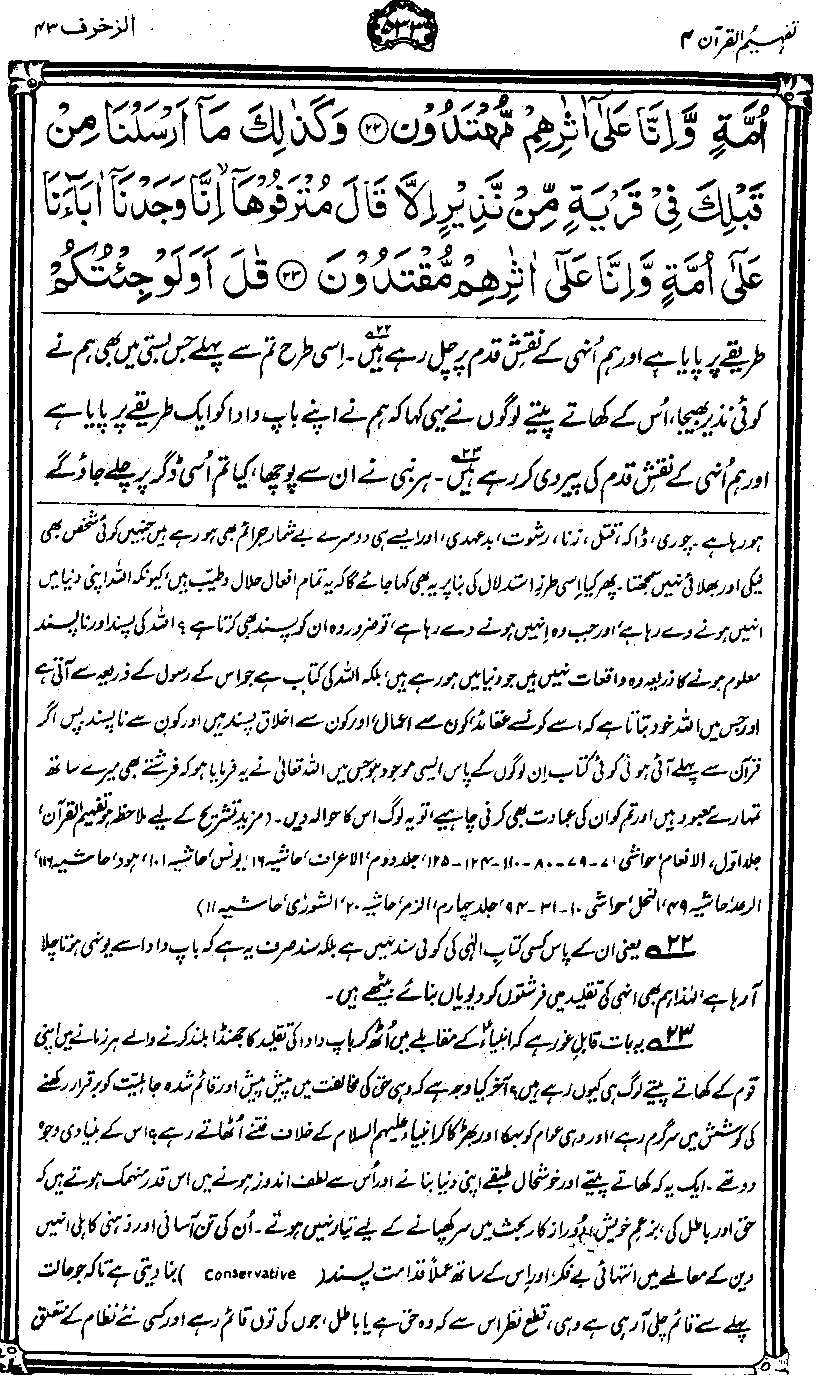 تفہیم القرآن ۴
۵۳۳
الزخرف ۴۳
اُمَّةٍ وَّاِنَّا عَلٰٓى اٰثٰرِهِمْ مُّهْتَدُوْنَ ﴿۲۲﴾ وَكَذٰلِكَ مَآ اَرْسَلْنَا مِنْ
قَبْلِكَ فِيْ قَرْيَةٍ مِّنْ نَّذِيْرٍ اِلَّا قَالَ مُتْرَفُوْهَآ ۙ اِنَّا وَجَدْنَآ اٰبَآءَنَا
عَلٰٓى اُمَّةٍ وَّاِنَّا عَلٰٓى اٰثٰرِهِمْ مُّقْتَدُوْنَ ﴿۲۳﴾ قٰلَ اَوَلَوْ جِئْتُكُمْ
طریقے پر پایا ہے اور ہم اُنہی کے نقشِ قدم پر چل رہے ہیں۲۲۔ اِسی طرح تم سے پہلے جس بستی میں بھی ہم نے
کوئی نذیر بھیجا، اُس کے کھاتے پیتے لوگوں نے یہی کہا کہ ہم نے اپنے باپ دادا کو ایک طریقے پر پایا ہے
اور ہم اُنہی کے نقشِ قدم کی پیروی کر رہے ہیں۲۳۔ ہر نبی نے ان سے پوچھا، کیا تم اُسی ڈگر پر چلے جاؤ گے
ہو رہا ہے۔ چوری، ڈاکہ، قتل، زنا، رشوت، بدعہدی، اور ایسے ہی دوسرے بے شمار جرائم بھی ہو رہے ہیں جنہیں کوئی شخص بھی
نیکی اور بھلائی نہیں سمجھتا۔ پھر کیا اِسی طرزِ استدلال کی بنا پر یہ بھی کہا جائے گا کہ یہ تمام افعال حلال و طیّب ہیں، کیونکہ اللہ اپنی دنیا میں
انہیں ہونے دے رہا ہے، اور جب وہ انہیں ہونے دے رہا ہے، تو ضرور وہ ان کو پسند بھی کرتا ہے؟ اللہ کی پسند اور ناپسند
معلوم ہونے کا ذریعہ وہ واقعات نہیں ہیں جو دنیا میں ہو رہے ہیں، بلکہ اللہ کی کتاب ہے جو اس کے رسول کے ذریعہ سے آتی ہے
اور جس میں اللہ خود بتاتا ہے کہ اسے کونسے عقائد، کون سے اعمال، اور کون سے اخلاق پسند ہیں اور کون سے ناپسند۔ پس اگر
قرآن سے پہلے آئی ہوئی کوئی کتاب اِن لوگوں کے پاس ایسی موجود ہو جس میں اللہ تعالیٰ نے یہ فرمایا ہو کہ فرشتے بھی میرے ساتھ
تمہارے معبود ہیں اور تم کو ان کی عبادت بھی کرنی چاہیے، تو یہ لوگ اس کا حوالہ دیں۔ (مزید تشریح کے لیے ملاحظہ ہو تفہیم القرآن،
جلد اوّل، الانعام، حواشی ۷۱-۷۹-۸۰-۱۱۰-۱۲۴-۱۲۵، جلد دوم، الاعراف، حاشیہ ۱۶، یونس، حاشیہ ۱۰۱، ہود، حاشیہ ۱۱۶،
الرعد، حاشیہ ۴۹، النحل، حواشی ۱۰-۳۱-۹۴، جلد چہارم، الزمر، حاشیہ ۲۰، الشوریٰ، حاشیہ ۱۱)
۲۲ یعنی ان کے پاس کسی کتابِ الٰہی کی کوئی سند نہیں ہے بلکہ سند صرف یہ ہے کہ باپ دادا سے یونہی ہوتا چلا
آ رہا ہے، لہٰذا ہم بھی انہی کی تقلید میں فرشتوں کو دیویاں بنائے بیٹھے ہیں۔
۲۳ یہ بات قابلِ غور ہے کہ انبیاءؑ کے مقابلے میں اُٹھ کر باپ دادا کی تقلید کا جھنڈا بلند کرنے والے ہر زمانے میں اپنی
قوم کے کھاتے پیتے لوگ ہی کیوں رہے ہیں؟ آخر کیا وجہ ہے کہ وہی حق کی مخالفت میں پیش پیش اور قائم شدہ جاہلیت کو برقرار رکھنے
کی کوشش میں سرگرم رہے، اور وہی عوام کو بہکا اور بھڑکا کر انبیاء علیہم السلام کے خلاف فتنے اُٹھاتے رہے؟ اس کے بنیادی وجوہ
دو تھے۔ ایک یہ کہ کھاتے پیتے اور خوشحال طبقے اپنی دنیا بنانے اور اُس سے لطف اندوز ہونے میں اس قدر منہمک ہوتے ہیں کہ
حق اور باطل کی، بزعمِ خویش، دُور از کار بحث میں سر کھپانے کے لیے تیار نہیں ہوتے۔ اُن کی تن آسانی اور ذہنی کاہلی انہیں
دین کے معاملے میں انتہائی بے فکر، اور اِس کے ساتھ عملاً قدامت پسند (Conservative) بنا دیتی ہے تاکہ جو حالت
پہلے سے قائم چلی آ رہی ہے وہی، قطع نظر اس سے کہ وہ حق ہے یا باطل، جوں کی توں قائم رہے اور کسی نئے نظام کے متعلق